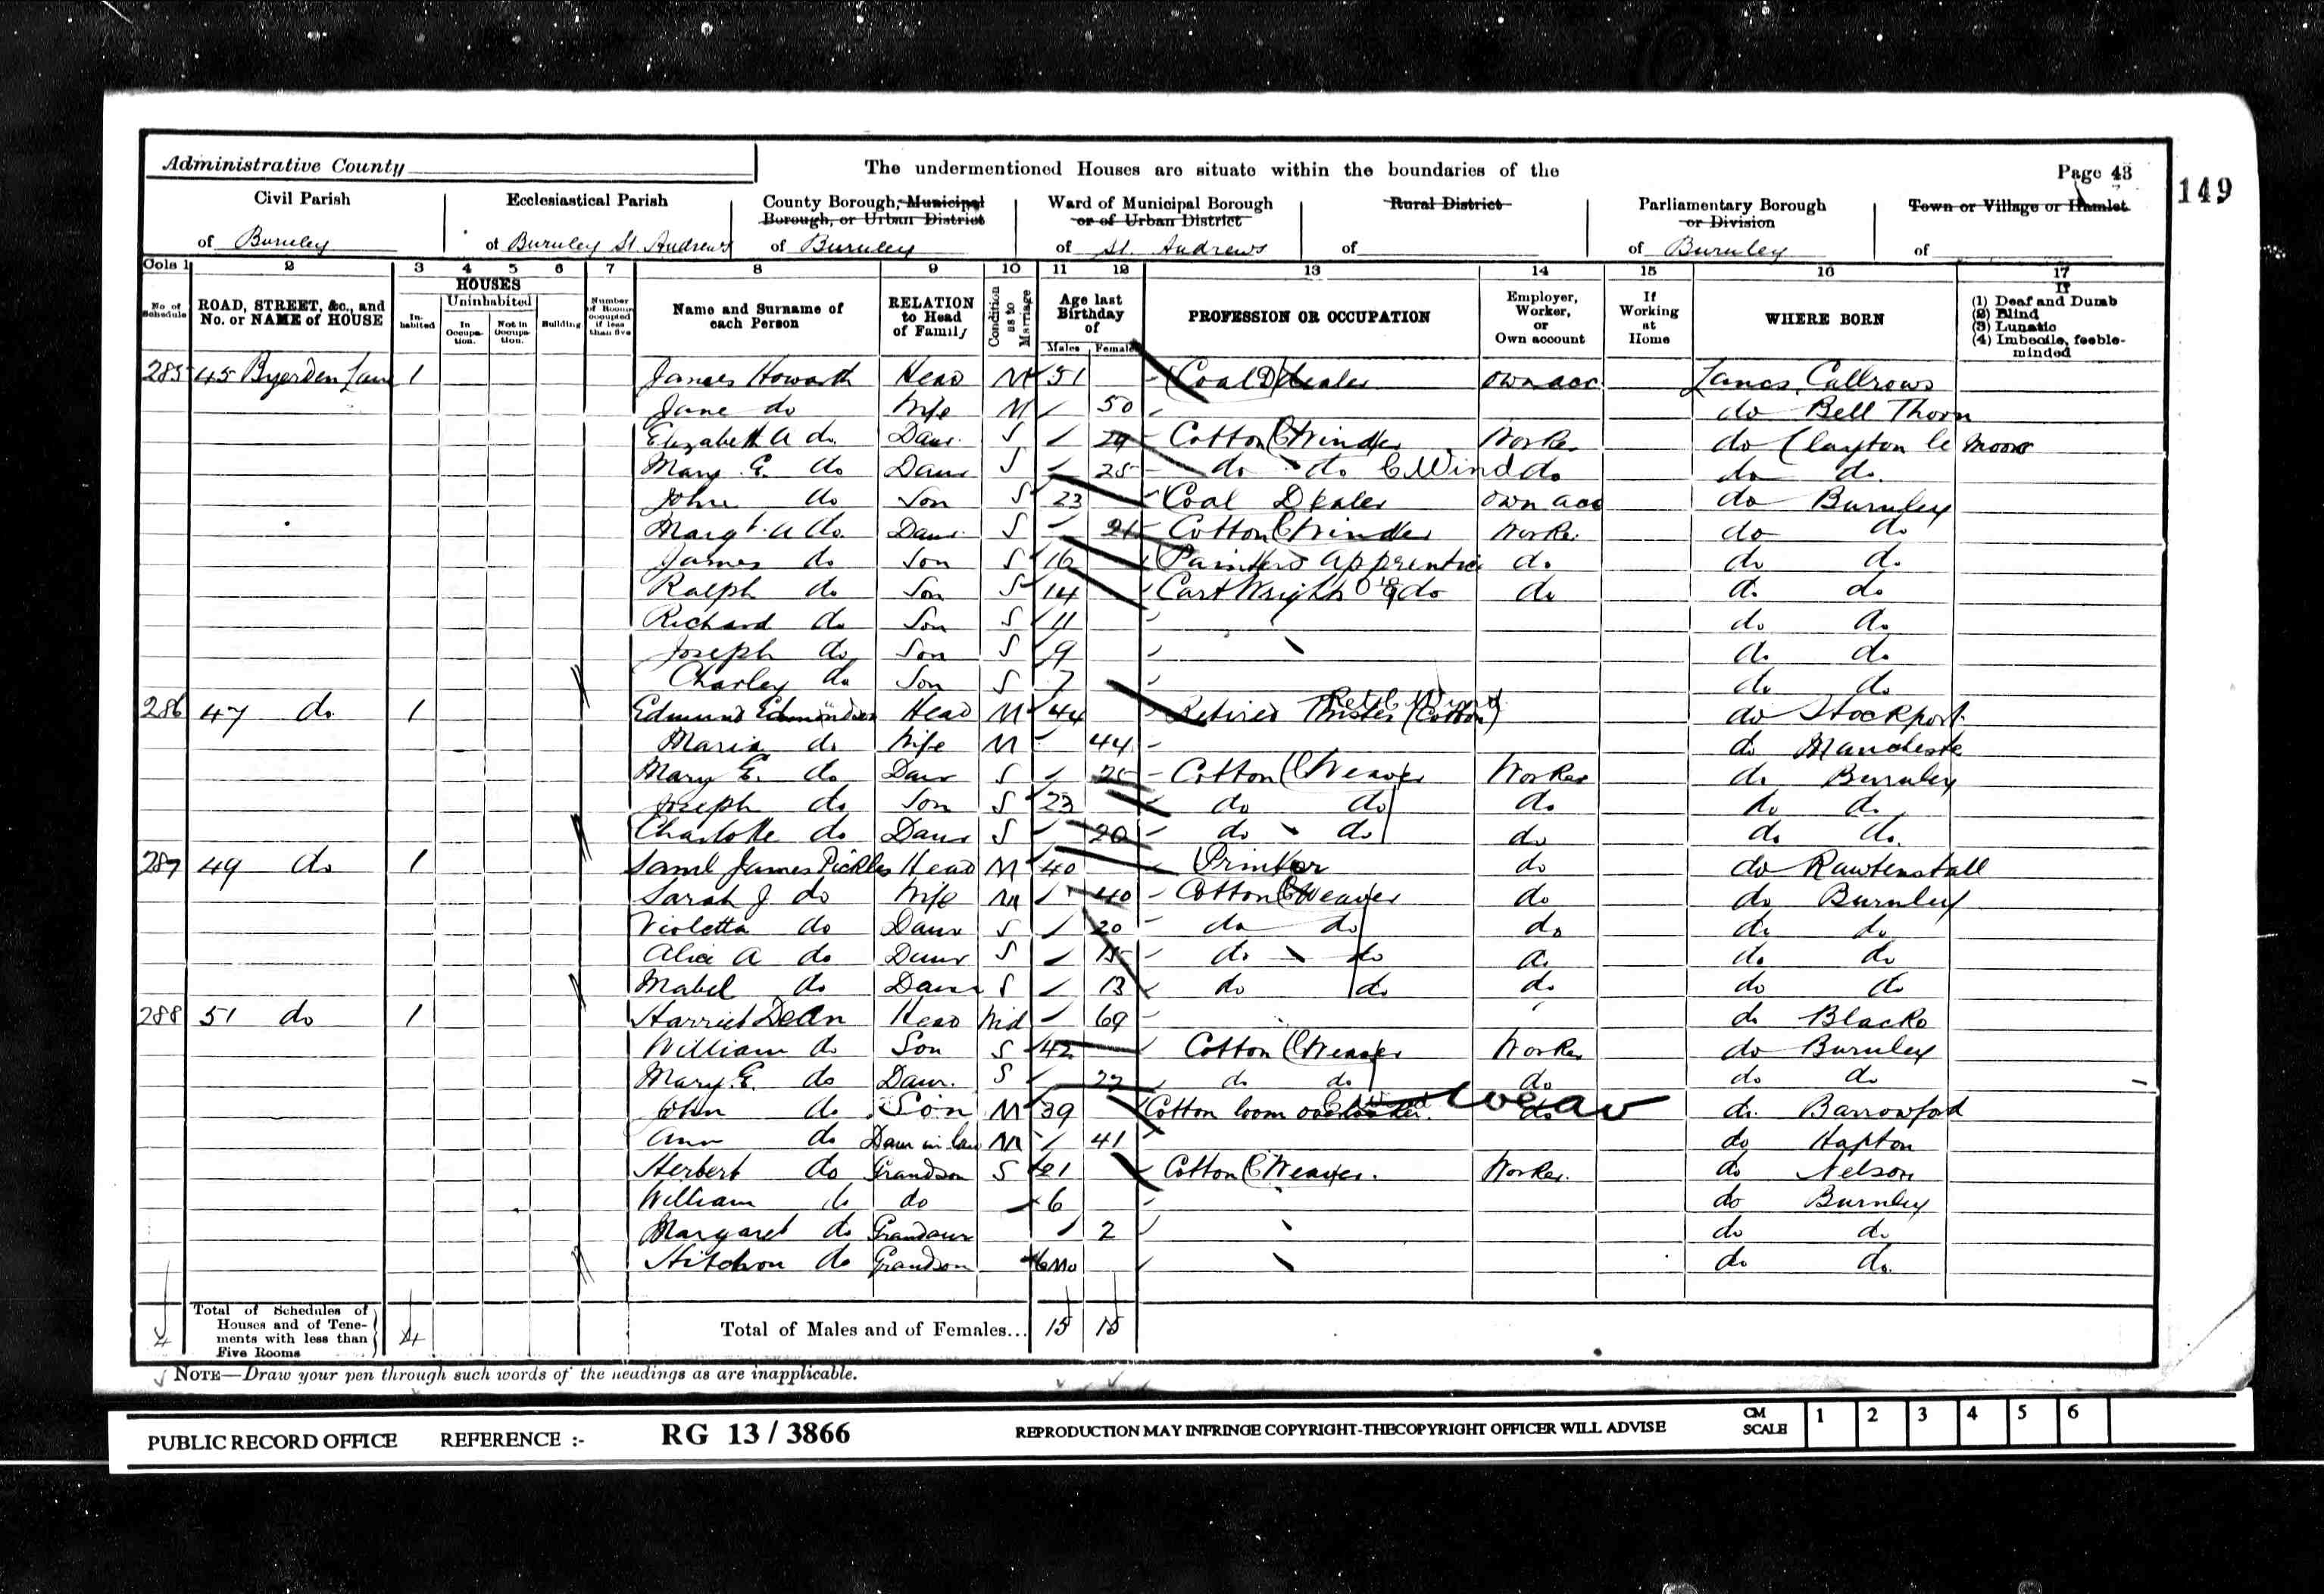 Administrative County
The undermentioned Houses are situate within the boundaries of the
Page 43
149
Civil Parish
of Burnley
Ecclesiastical Parish
of Burnley St Andrews
County Borough, Municipal
Borough, or Urban District
of Burnley
Ward of Municipal Borough
or of Urban District
of St. Andrews
Rural District
of
Parliamentary Borough
or Division
of Burnley
Town or Village or Hamlet
of
Cols 1 2 3 4 5 6 7 8 9 10 11 12 13 14 15 16 17
No. of Schedule
ROAD, STREET, &c., and No. or NAME of HOUSE
HOUSES
In-habited
Uninhabited
In Occupa-tion.
Not in Occupa-tion.
Building
Number of Rooms occupied if less than five
Name and Surname of each Person
RELATION to Head of Family
Condition as to Marriage
Age last Birthday of
Males Females
PROFESSION OR OCCUPATION
Employer, Worker, or Own account
If Working at Home
WHERE BORN
If
(1) Deaf and Dumb
(2) Blind
(3) Lunatic
(4) Imbecile, feeble-minded
285 45 Byerden Lane 1 James Howarth Head M 51 Coal Dealer own acc. Lancs.
Jane do Wife M 50 do Bell Thorn
Elizabeth A do Daur. S 29 Cotton Winder Worker do Clayton le Moors
Mary E. do Daur S 25 do do C Wind do do do.
John do Son S 23 Coal Dealer own acc do Burnley
Margt. A do. Daur. S 21 Cotton Winder Worker do do
James do Son S 16 Painters Apprentice do. do do.
Ralph do Son S 14 Cart Wright do do do do
Richard do Son S 11 do do
Joseph do Son S 9 do do
Charley do Son S 7 do do
286 47 do. 1 Edmund Edmondson Head M 44 Retired Twister (Cotton) do Stockport.
Maria do Wife M 44 do Mancheste
Mary E. do Daur S 25 Cotton Weaver Worker do Burnley
Joseph do Son S 23 do do do do do.
Charlotte do Daur S 20 do do do do do.
287 49 do 1 Saml James Pickles Head M 40 Printer do do Rawtenstall
Sarah J. do Wife M 40 Cotton Weaver do do Burnley
Violetta do Daur S 20 do do do do do
Alice A do Daur S 15 do do do do do
Mabel do Daur S 13 do do do do do
288 51 do 1 Harriet Dean Head Wid 69 do Blacko
William do Son S 42 Cotton Weaver Worker do Burnley
Mary E. do Daur. S do do do do do
John do Son M 39 Cotton loom overlooker. weav do do Barrowford
Ann do Daur in law M 41 do Hapton
Herbert do Grandson S 21 Cotton Weaver. Worker. do Nelson
William do do 6 do Burnley
Margaret do Grandaur 2 do do
Hitchon do Grandson 6mo do do.
4 Total of Schedules of Houses and of Tene-ments with less than Five Rooms 4 Total of Males and of Females... 15 15
NOTE—Draw your pen through such words of the headings as are inapplicable.
PUBLIC RECORD OFFICE REFERENCE :- RG 13 / 3866 REPRODUCTION MAY INFRINGE COPYRIGHT-THECOPYRIGHT OFFICER WILL ADVISE CM SCALE 1 2 3 4 5 6